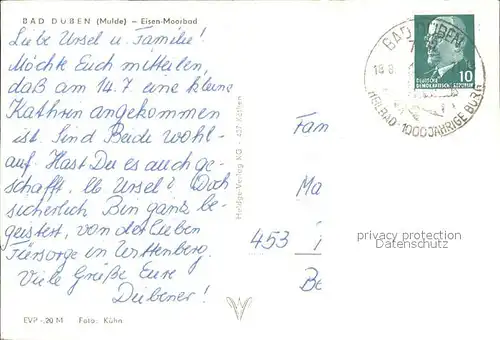 BAD DÜBEN (Mulde) – Eisen-Moorbad
Liebe Ursel u. Familie!
Möchte Euch mitteilen,
daß am 14.7. eine kleine
Kathrin angekommen
ist. Sind Beide wohl-
auf. Hast Du es auch ge-
schafft, lb Ursel? Doch
sicherlich. Bin ganz be-
geistert, von der lieben
Fürsorge in Wittenberg.
Viele Grüße Eure
Dübener!
EVP -,20 M Foto: Kühn
Handge-Verlag KG 437 Köthen
BAD DÜBEN
18.8.
-1000JÄHRIGE BURG
DEUTSCHE
DEMOKRATISCHE REPUBLIK
10
Fam
Ma
453
Be
privacy protection
Datenschutz